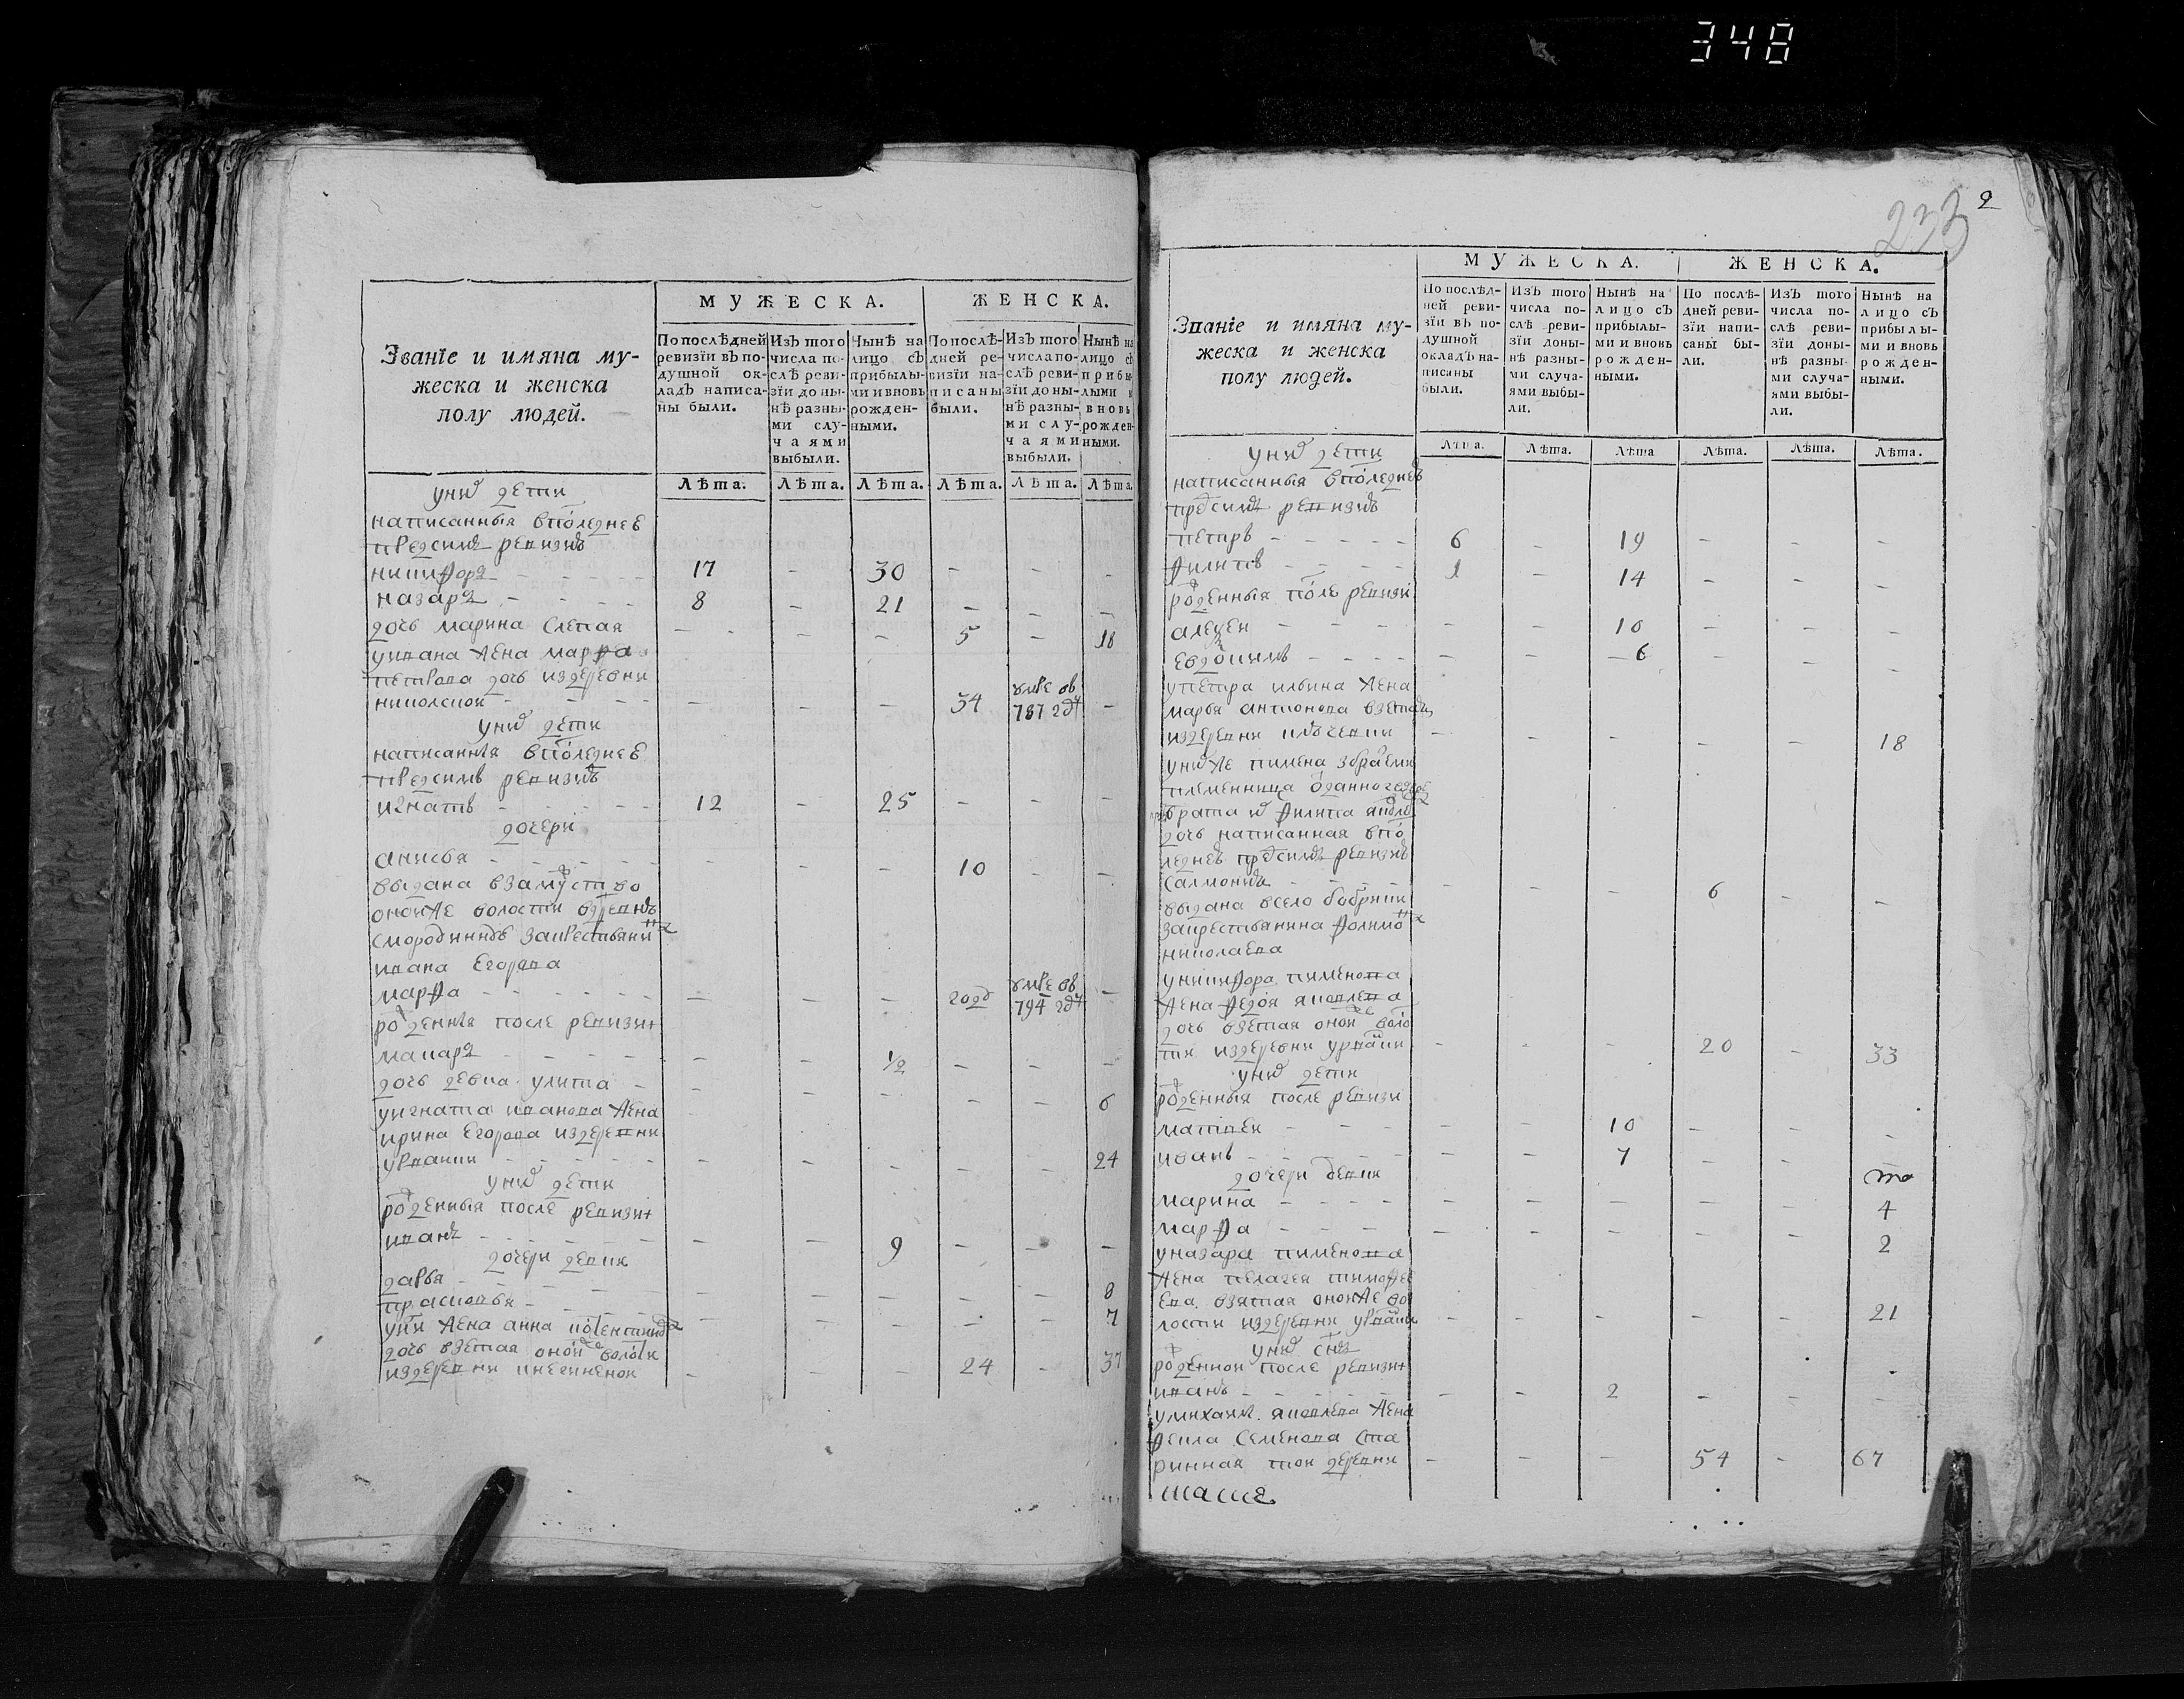 348
МУЖЕСКА. ЖЕНСКА.
Званїе и имяна му-
жеска и женска
полу людей.
По послѣдней
ревизїи въ по-
душной ок-
ладъ написа-
ны были.
Изъ того
числа по-
слѣ реви-
зїи до ны-
нѣ разны-
ми слу-
чаями
выбыли.
Нынѣ на
лицо съ
прибылы-
ми и вновь
рожден-
ными.
По послѣ-
дней ре-
визїи на-
писаны
были.
Изъ того
числа по-
слѣ реви-
зїи до ны-
нѣ разны-
ми слу-
чаями
выбыли.
Нынѣ на
лицо съ
прибы-
лыми и
вновь
рожден-
ными.
Лѣта. Лѣта. Лѣта. Лѣта. Лѣта. Лѣта.
у них дети
написанныя в последнеѣ
пред сим ревизиѣ
никифоръ - 17 - 30 - - -
назаръ - 8 - 21 - - -
дочь марина слепая - - - 5 - 18
у ивана жена марфа
петрова дочь из деревни
никольской - - - 34 умре въ 787 году -
у них дети
написанныя в последнеѣ
пред симъ ревизиѣ
игнатъ - 12 - 25 - - -
дочери
анисья - - - 10 - -
выдана в замуство
оной же волости в деревню
смородинку за крестьянина
ивана егорова
марфа - - - году умре въ 794 году -
рожденныя после ревизии
макаръ - - ½ - - -
дочь девка улита - - - - - 6
у игната иванова жена
ирина егорова из деревни
урванки - - - - - 24
у них дети
рожденныя после ревизии
иванъ - - 9 - - -
дочери девки
дарья - - - - - 8
прасковья - - - - - 7
дочь взетая оной же волости
из деревни - - - 24 - 37
233 2
МУЖЕСКА. ЖЕНСКА.
Званїе и имяна му-
жеска и женска
полу людей.
По послѣд-
ней реви-
зїи въ по-
душной
окладъ на-
писаны
были.
Изъ того
числа по-
слѣ реви-
зїи доны-
нѣ разны-
ми случа-
ями выбы-
ли.
Нынѣ на
лицо съ
прибылы-
ми и вновь
рожден-
ными.
По послѣ-
дней реви-
зїи напи-
саны бы-
ли.
Изъ того
числа по-
слѣ реви-
зїи доны-
нѣ разны-
ми случа-
ями выбы-
ли.
Нынѣ на
лицо съ
прибылы-
ми и вновь
рожден-
ными.
Лѣта. Лѣта. Лѣта Лѣта. Лѣта. Лѣта.
у них дети
написанныя в последнеѣ
пред сим ревизиѣ
петръ - 6 - 19 - - -
филипъ - 1 - 14 - - -
рожденныя после ревизи
алексеи - - - 10 - - -
евдокимъ - - - 6 - - -
у петра ильина жена
марья антионова взетая
из деревни - - - - - 18
у них же пимена з братьеми
племенница
брата их филипа яковлева
дочь написанная в по
следнеѣ пред симъ ревизиѣ
- - - 6 - -
выдана в село бобрики
за крестьянина
николаева
у никифора пименова
жена федося яковлева
дочь взетая оной же воло
сти из деревни урванки - - - 20 - 33
у них дети
рожденныя после ревизи
матвеи - - - 10 - - -
иванъ - - - 7 - - -
дочери девки
марина - - - - - 4
марфа - - - - - 2
у назара пименова
жена пелагея тимофее
ева взятая оной же во
лости из деревни урванки - - - - - 21
у них сынъ
рожденной после ревизии
иванъ - - 2 - - -
у михаилы яковлева жена
фекла семенова ста
ринная той деревни - - - 54 - 67